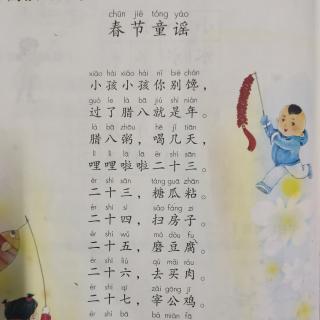 chūn jié tóng yáo
春节童谣
xiǎo hái xiǎo hái nǐ bié chán
小孩小孩你别馋，
guò le là bā jiù shì nián
过了腊八就是年。
là bā zhōu hē jǐ tiān
腊八粥，喝几天，
lī lī lā lā èr shí sān
哩哩啦啦二十三。
èr shí sān táng guā zhān
二十三，糖瓜粘。
èr shí sì sǎo fáng zi
二十四，扫房子。
èr shí wǔ mò dòu fu
二十五，磨豆腐。
èr shí liù qù mǎi ròu
二十六，去买肉。
èr shí qī zǎi gōng jī
二十七，宰公鸡。
èr shí bā bǎ miàn fā